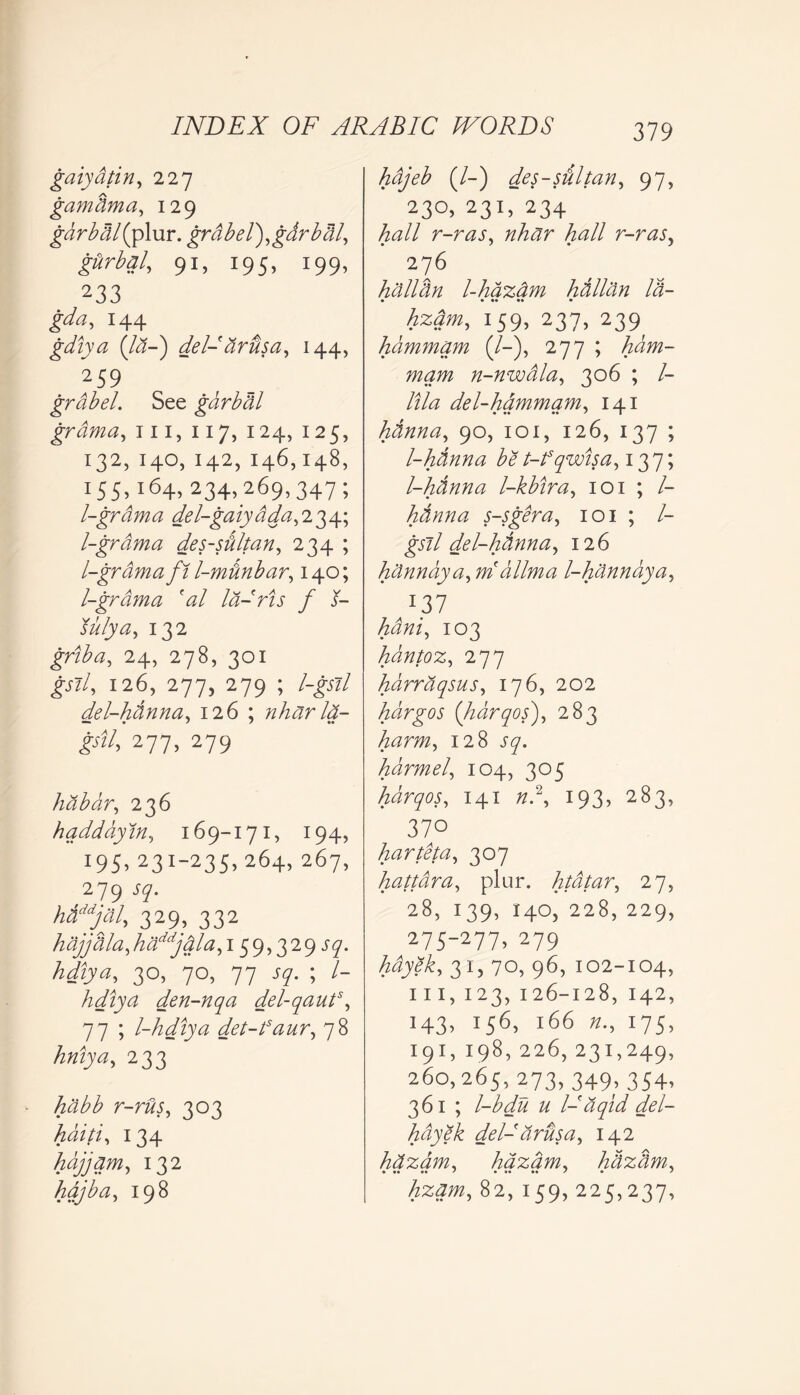 INDEX OF ARABIC WORDS
379
gaiyâṭin, 227
gamăma, 129
gárbăl (plur. grábel), gárbăl,
gŭrbạl, 91, 195, 199,
233
gda, 144
gdîya (lă-) ḏel-ʿărûsa, 144,
259
grábel. See gárbăl
grâma, 111, 117, 124, 125,
132, 140, 142, 146, 148,
155, 164, 234, 269, 347;
l-grâma ḏel-gaiyâḍa, 234;
l-grâma ḏeṣ-ṣŭlṭan, 234 ;
l-grâma fī l-mŭnbar, 140;
l-grâma ʿal lă-ʿrîs f š-
šŭlya, 132
grîba, 24, 278, 301
gsīl, 126, 277, 279 ; l-gsīl
ḏel-ḥănna, 126 ; nhăr lạ-
gsīl, 277, 279
hăbár, 236
hạddáyīn, 169-171, 194,
195, 231-235, 264, 267,
279 sq.
hăᵈᵈjăl, 329, 332
hăjjăla, hăᵈᵈjạla, 159, 329 sq.
hḏîya, 30, 70, 77 sq. ; l-
hḏîya ḏen-nqa ḏel-qautˢ,
77 ; l-hḏîya ḏet-tˢaur, 78
hnîya, 233
ḥăbb r-rûṣ, 303
ḥáiṭi, 134
ḥájjạm, 132
ḥạ́jba, 198
ḥájeb (l-) ḏeṣ-ṣŭlṭan, 97,
230, 231, 234
ḥall r-ras, nhăr ḥall r-ras,
276
ḥăllăn l-ḥạzạm ḥăllăn lă-
ḥzạm, 159, 237, 239
ḥámmạm (l-), 277 ; ḥám-
mạm n-nwâla, 306 ; l-
lîla ḏel-ḥạmmạm, 141
ḥănna, 90, 101, 126, 137 ;
l-ḥănna bĕ t-tˢqwîsa, 137;
l-ḥănna l-kbîra, 101 ; l-
ḥănna ṣ-ṣgêra, 101 ; l-
gsīl ḏel-ḥănna, 126
ḥănnáya, mʿăllma l-ḥănnáya,
137
ḥăni, 103
ḥánṭoz, 277
ḥárrăqsus, 176, 202
ḥárgos (ḥárqoṣ), 283
ḥarm, 128 sq.
ḥármel, 104, 305
ḥárqoṣ, 141 n.², 193, 283,
370
ḥarṭêṭa, 307
ḥaṭṭára, plur. ḥṭáṭar, 27,
28, 139, 140, 228, 229,
275-277, 279
ḥáyĕk, 31, 70, 96, 102-104,
111, 123, 126-128, 142,
143, 156, 166 n., 175,
191, 198, 226, 231, 249,
260, 265, 273, 349, 354,
361 ; l-bdū u l-ʿăqid ḏel-
ḥáyĕk ḏel-ʿărûsa, 142
ḥạzám, ḥạzạm, ḥăzăm,
ḥzạm, 82, 159, 225, 237,